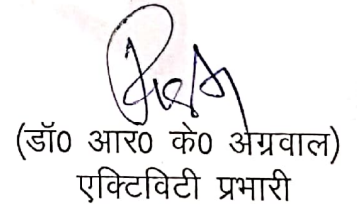 (डॉ0 आर0 के0 अग्रवाल)
एक्टिविटी प्रभारी